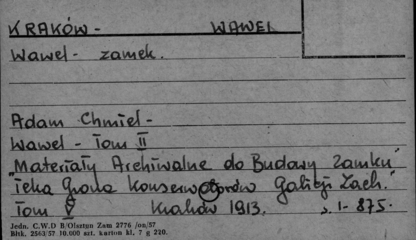 KRAKÓW- WAWEL
Wawel- zamek.
Adam Chmiel-
Wawel - Tom II
"Materiały Archiwalne do Budowy Zamku"
"Teka Grona Konserwatorów Galicji Zach."
Tom V Kraków 1913. s. 1- 875.
Jedn. C.W.D B/Olsztyn Zam 2776 /on/57
Bltk. 2563/57 10.000 szt. karton kl. 7 g 220.